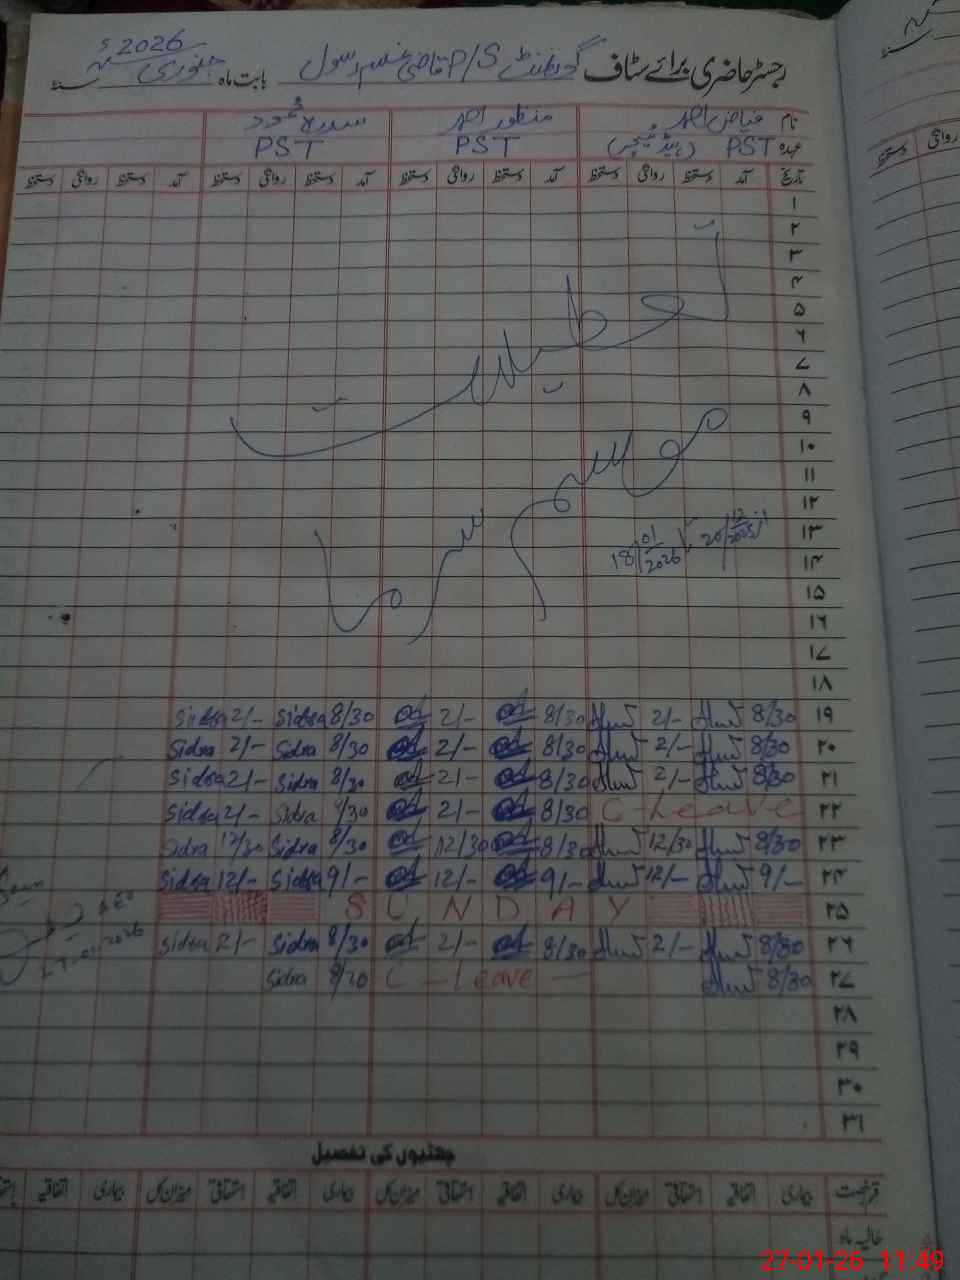 رجسٹر حاضری برائے سٹاف گورنمنٹ P/S قاضی غلام رسول بابت ماہ جنوری سنہ 2026ء
نام فیاض احمد منظور احمد سدرہ محمود
عہدہ PST (ہیڈ ٹیچر) PST PST
تاریخ آمد دستخط روانگی دستخط آمد دستخط روانگی دستخط آمد دستخط روانگی دستخط آمد دستخط روانگی دستخط
۱
۲
۳
۴
۵
۶
۷
۸
۹
۱۰
۱۱
۱۲
۱۳
۱۴
۱۵
۱۶
۱۷
۱۸
تعطیلات
موسم سرما
از 20/12/2025 تا 18/01/2026
۱۹ 8/30 2/- 8/30 2/- 8/30 Sidra 2/- Sidra
۲۰ 8/30 2/- 8/30 2/- 8/30 Sidra 2/- Sidra
۲۱ 8/30 2/- 8/30 2/- 8/30 Sidra 2/- Sidra
۲۲ C-Leave 8/30 2/- 8/30 Sidra 2/- Sidra
۲۳ 8/30 12/30 8/30 12/30 8/30 Sidra 12/30 Sidra
۲۴ 9/- 12/- 9/- 12/- 9/- Sidra 12/- Sidra
۲۵ SUNDAY
۲۶ 8/30 2/- 8/30 2/- 8/30 Sidra 2/- Sidra
۲۷ 8/30 C-Leave 8/30 Sidra
27-01-2026
۲۸
۲۹
۳۰
۳۱
چھٹیوں کی تفصیل
قسم رخصت بیماری اتفاقیہ استحقاقی میزان کل بیماری اتفاقیہ استحقاقی میزان کل بیماری اتفاقیہ استحقاقی میزان کل بیماری اتفاقیہ
حالیہ ماہ
27-01-26 11:49